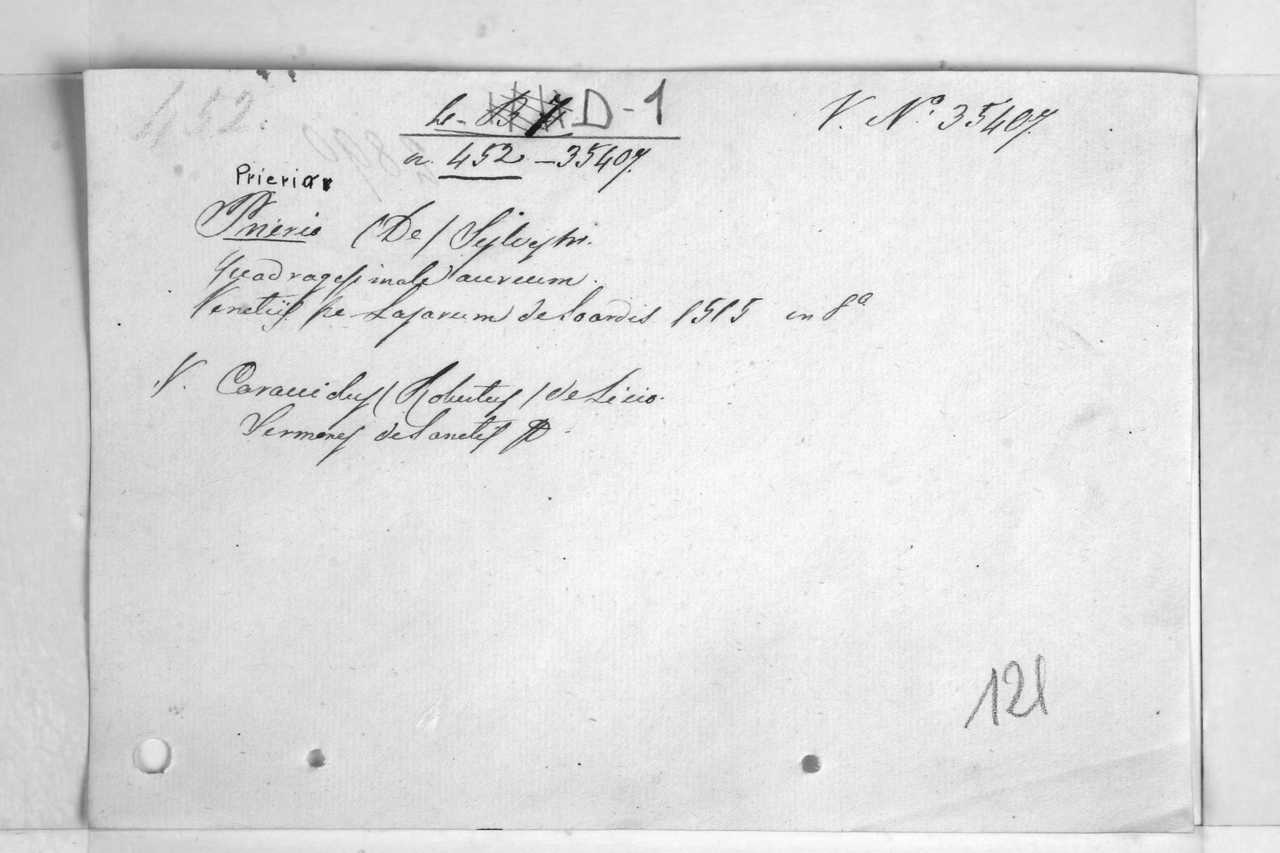 452.
D-1
V. Nº 35407.
n. 452 - 35407.
Prierio
Prierio (De) Sylvestri.
Quadragesimale aureum.
Venetijs per Lazarum de Soardis 1515 in 8ª
V. Caracciolus (Robertus) de Licio.
Sermones de Sanctis
121